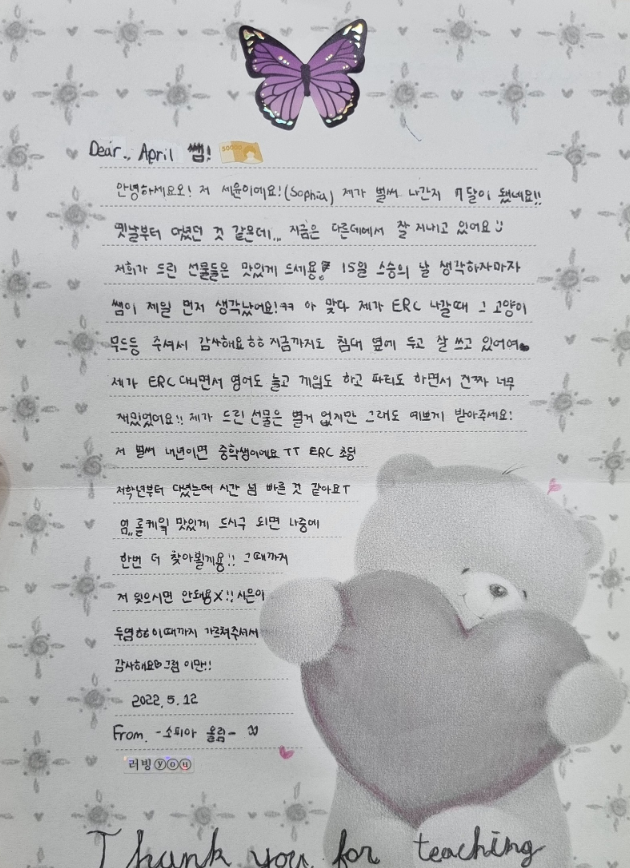 Dear., April 쌤!
안녕하세요오! 저 세윤이에요!(Sophia) 제가 벌써 나간지 7달이 됐네요!!
옛날부터 다녔던 것 같은데... 지금은 다른데에서 잘 지내고 있어요
저희가 드린 선물들은 맛있게 드세용 15일 스승의 날 생각하자마자
쌤이 제일 먼저 생각났어요!ㅋㅋ 아 맞다 제가 ERC 나갈때 그 고양이
무드등 주셔서 감사해요ㅎㅎ 지금까지도 침대 옆에 두고 잘 쓰고 있어여
제가 ERC 다니면서 영어도 늘고 게임도 하고 파티도 하면서 진짜 너무
재밌었어요!! 제가 드린 선물은 별거 없지만 그래도 예쁘게 받아주세요!
저 벌써 내년이면 중학생이에요 TT ERC 초딩
저학년부터 다녔는데 시간 넘 빠른 것 같아요T
염,, 롤케익 맛있게 드시구 되면 나중에
한번 더 찾아뵐게용!! 그때까지
저 잊으시면 안돼용X!! 시은이
두염ㅎㅎ 이때까지 가르쳐주셔서
감사해요 그럼 이만!!
2022. 5. 12
From. -소피아 올림-
러빙you
Thank you for teaching